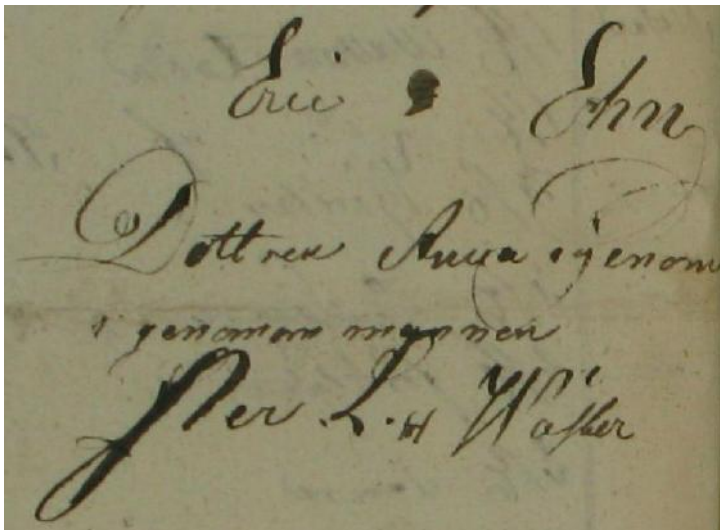 Eric Ehn
Dottren Anna igenom
igenom mannen
Per L. H